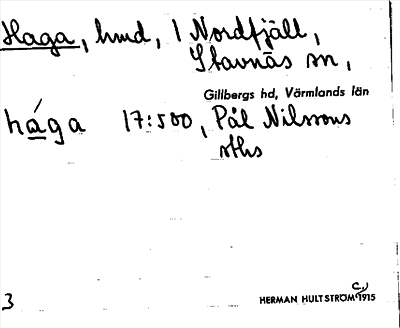 Haga, hmd, 1 Nordfjäll,
Stavnäs sn,
Gillbergs hd, Värmlands län
hága 17:500, Pål Nilssons
sths
3
HERMAN HULTSTRÖM c.) 1915